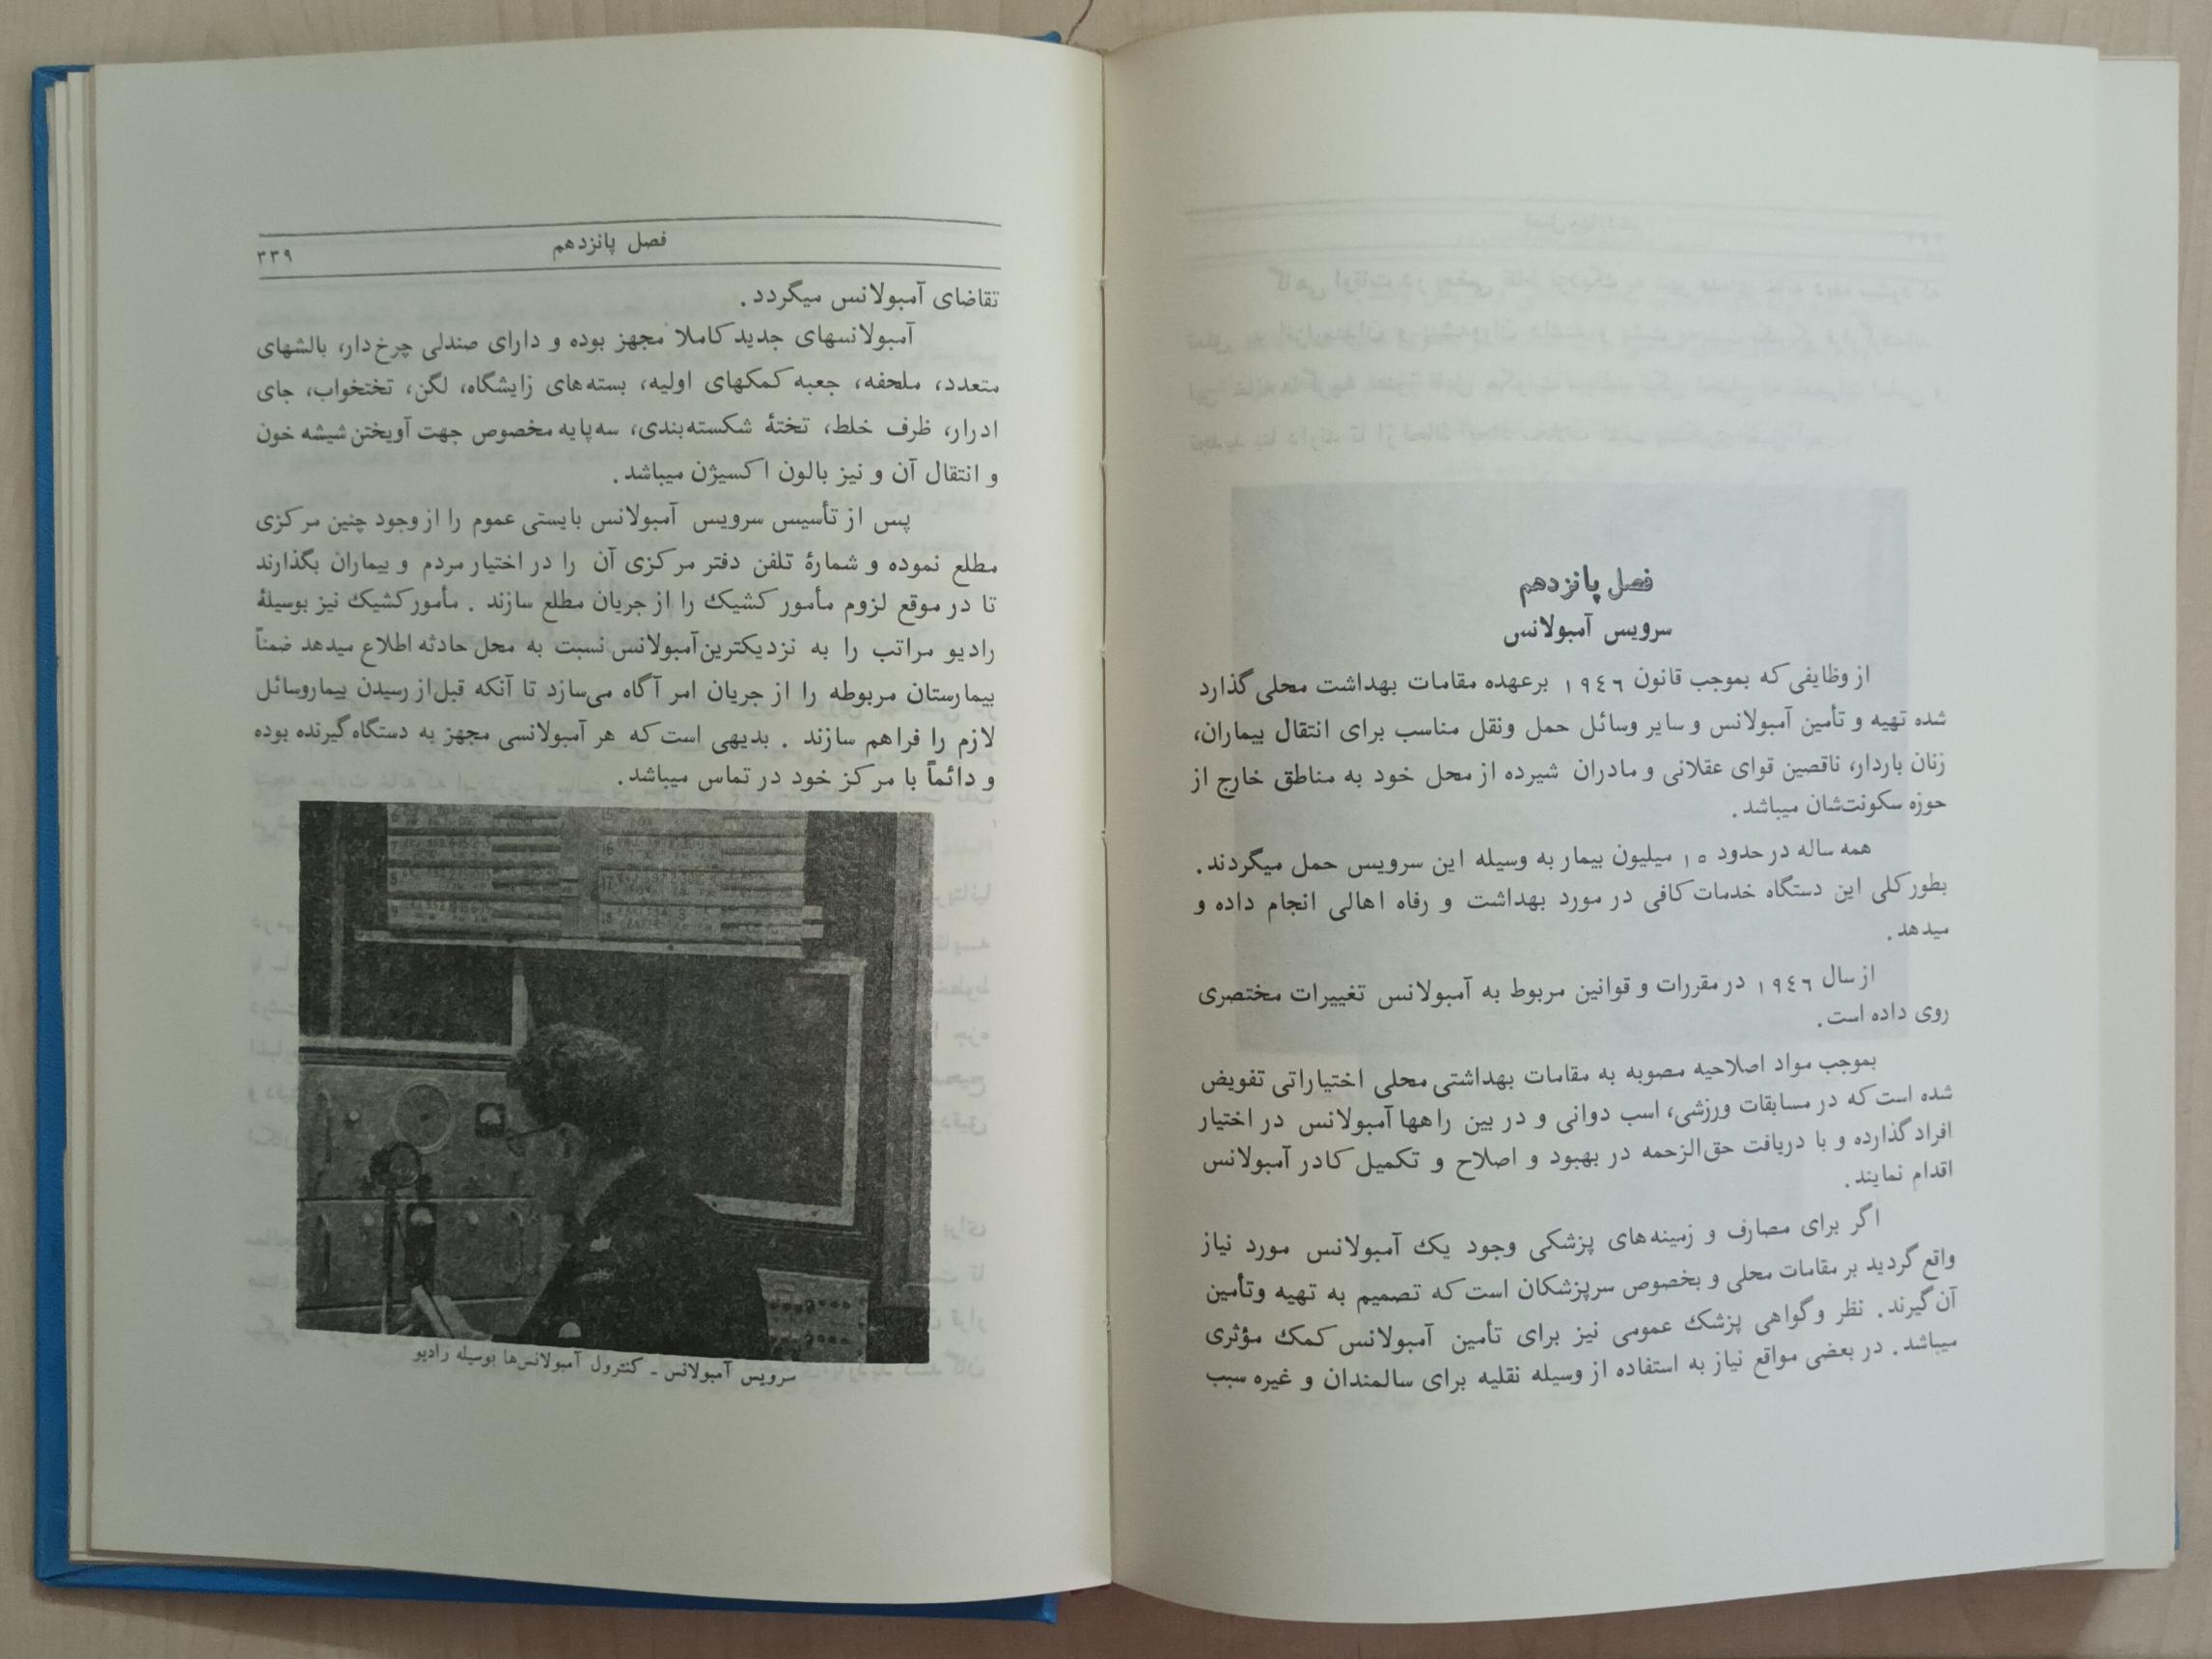 فصل پانزدهم
سرویس آمبولانس
از وظایفی که بموجب قانون ۱۹٤٦ برعهده مقامات بهداشت محلی گذارد
شده تهیه و تأمین آمبولانس و سایر وسائل حمل ونقل مناسب برای انتقال بیماران،
زنان باردار، ناقصین قوای عقلانی و مادران شیرده از محل خود به مناطق خارج از
حوزه سکونت‌شان میباشد.
همه ساله در حدود ۱۵ میلیون بیمار به وسیله این سرویس حمل میگردند.
بطور کلی این دستگاه خدمات کافی در مورد بهداشت و رفاه اهالی انجام داده و
میدهد.
از سال ۱۹٤٦ در مقررات و قوانین مربوط به آمبولانس تغییرات مختصری
روی داده است.
بموجب مواد اصلاحیه مصوبه به مقامات بهداشتی محلی اختیاراتی تفویض
شده است که در مسابقات ورزشی، اسب دوانی و در بین راهها آمبولانس در اختیار
افراد گذارده و با دریافت حق‌الزحمه در بهبود و اصلاح و تکمیل کادر آمبولانس
اقدام نمایند.
اگر برای مصارف و زمینه‌های پزشکی وجود یک آمبولانس مورد نیاز
واقع گردید بر مقامات محلی و بخصوص سرپزشکان است که تصمیم به تهیه وتأمین
آن گیرند. نظر وگواهی پزشک عمومی نیز برای تأمین آمبولانس کمک مؤثری
میباشد. در بعضی مواقع نیاز به استفاده از وسیله نقلیه برای سالمندان و غیره سبب
فصل پانزدهم
۳۳۹
تقاضای آمبولانس میگردد.
آمبولانسهای جدید کاملا مجهز بوده و دارای صندلی چرخ‌دار، بالشهای
متعدد، ملحفه، جعبه کمکهای اولیه، بسته‌های زایشگاه، لگن، تختخواب، جای
ادرار، ظرف خلط، تختهٔ شکسته‌بندی، سه‌پایه مخصوص جهت آویختن شیشه خون
و انتقال آن و نیز بالون اکسیژن میباشد.
پس از تأسیس سرویس آمبولانس بایستی عموم را از وجود چنین مرکزی
مطلع نموده و شمارهٔ تلفن دفتر مرکزی آن را در اختیار مردم و بیماران بگذارند
تا در موقع لزوم مأمور کشیک را از جریان مطلع سازند. مأمور کشیک نیز بوسیلهٔ
رادیو مراتب را به نزدیکترین آمبولانس نسبت به محل حادثه اطلاع میدهد ضمناً
بیمارستان مربوطه را از جریان امر آگاه می‌سازد تا آنکه قبل از رسیدن بیماروسائل
لازم را فراهم سازند. بدیهی است که هر آمبولانسی مجهز به دستگاه گیرنده بوده
و دائماً با مرکز خود در تماس میباشد.
سرویس آمبولانس ـ کنترول آمبولانس‌ها بوسیله رادیو